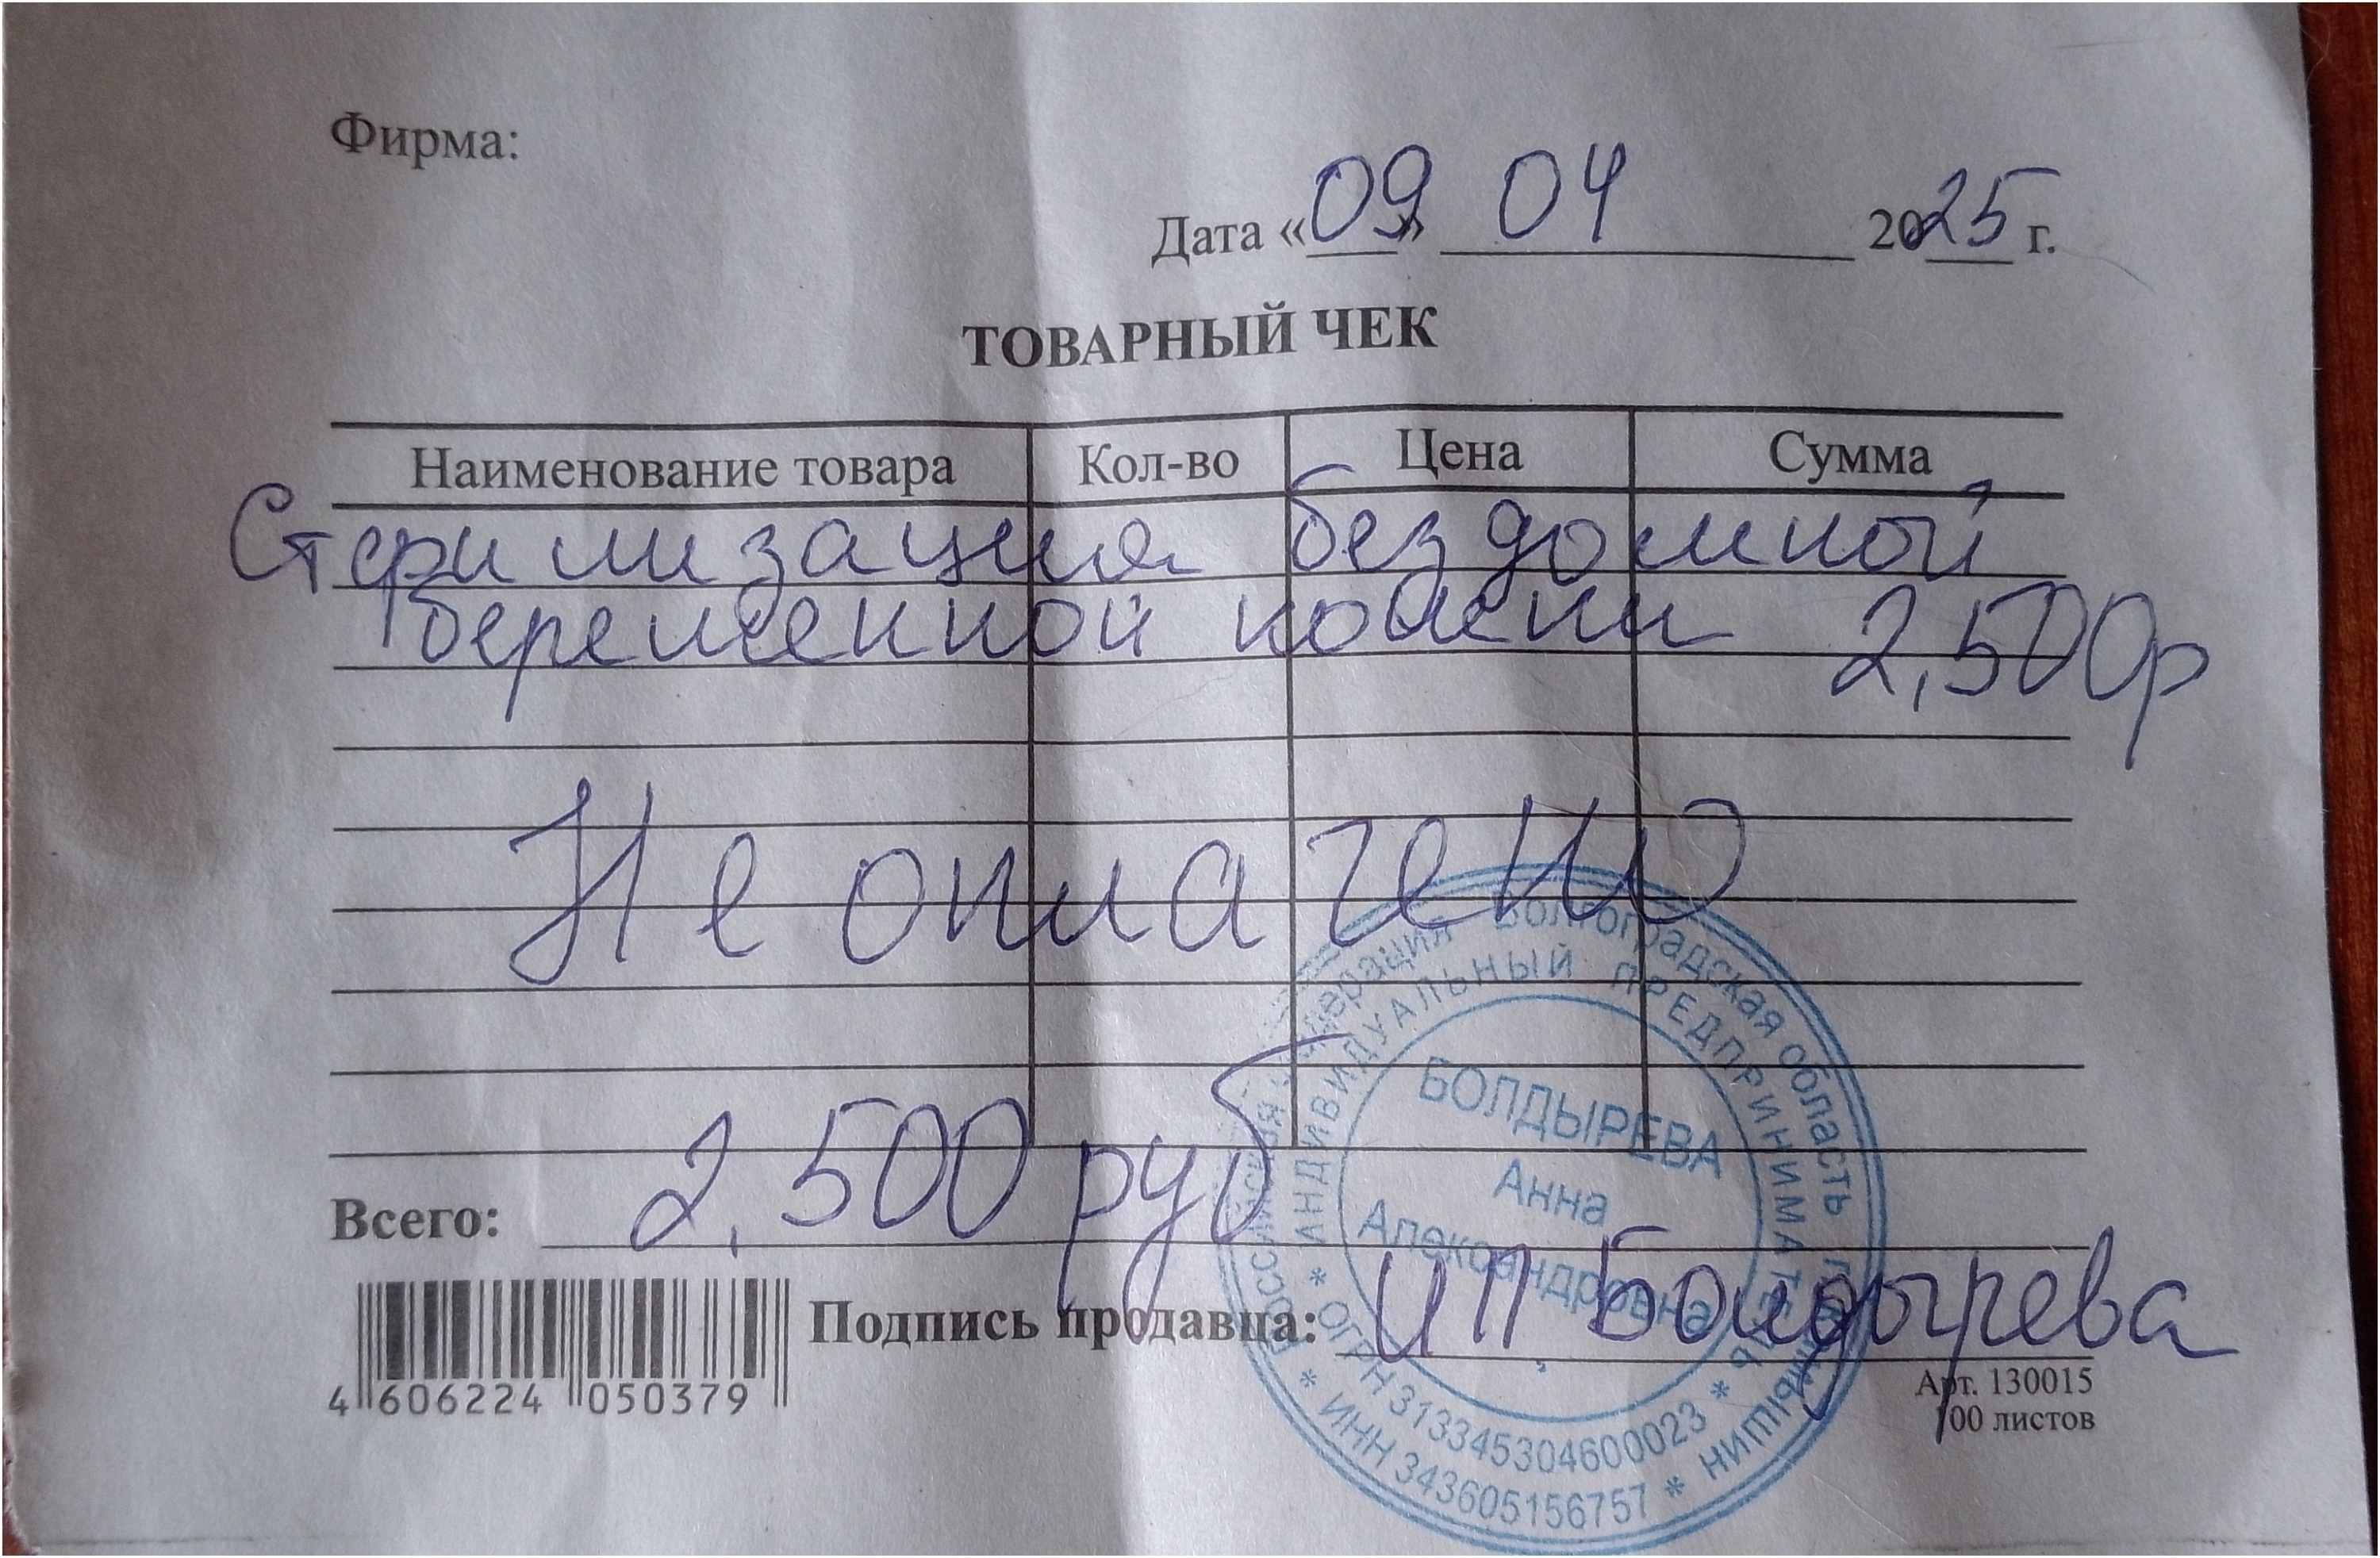 Фирма:
Дата «09» 04 2025 г.
ТОВАРНЫЙ ЧЕК
Наименование товара Кол-во Цена Сумма
Стерилизация бездомной
беременной кошки 2,500р
Не оплачено
Всего: 2,500 руб
Подпись продавца: ИП Болдырева
4 606224 050379
Арт. 130015
100 листов
Российская Федерация Волгоградская область г. Камышин
* ИНДИВИДУАЛЬНЫЙ ПРЕДПРИНИМАТЕЛЬ *
БОЛДЫРЕВА
Анна
Александровна
ОГРН 313345304600023
* ИНН 343605156757 *